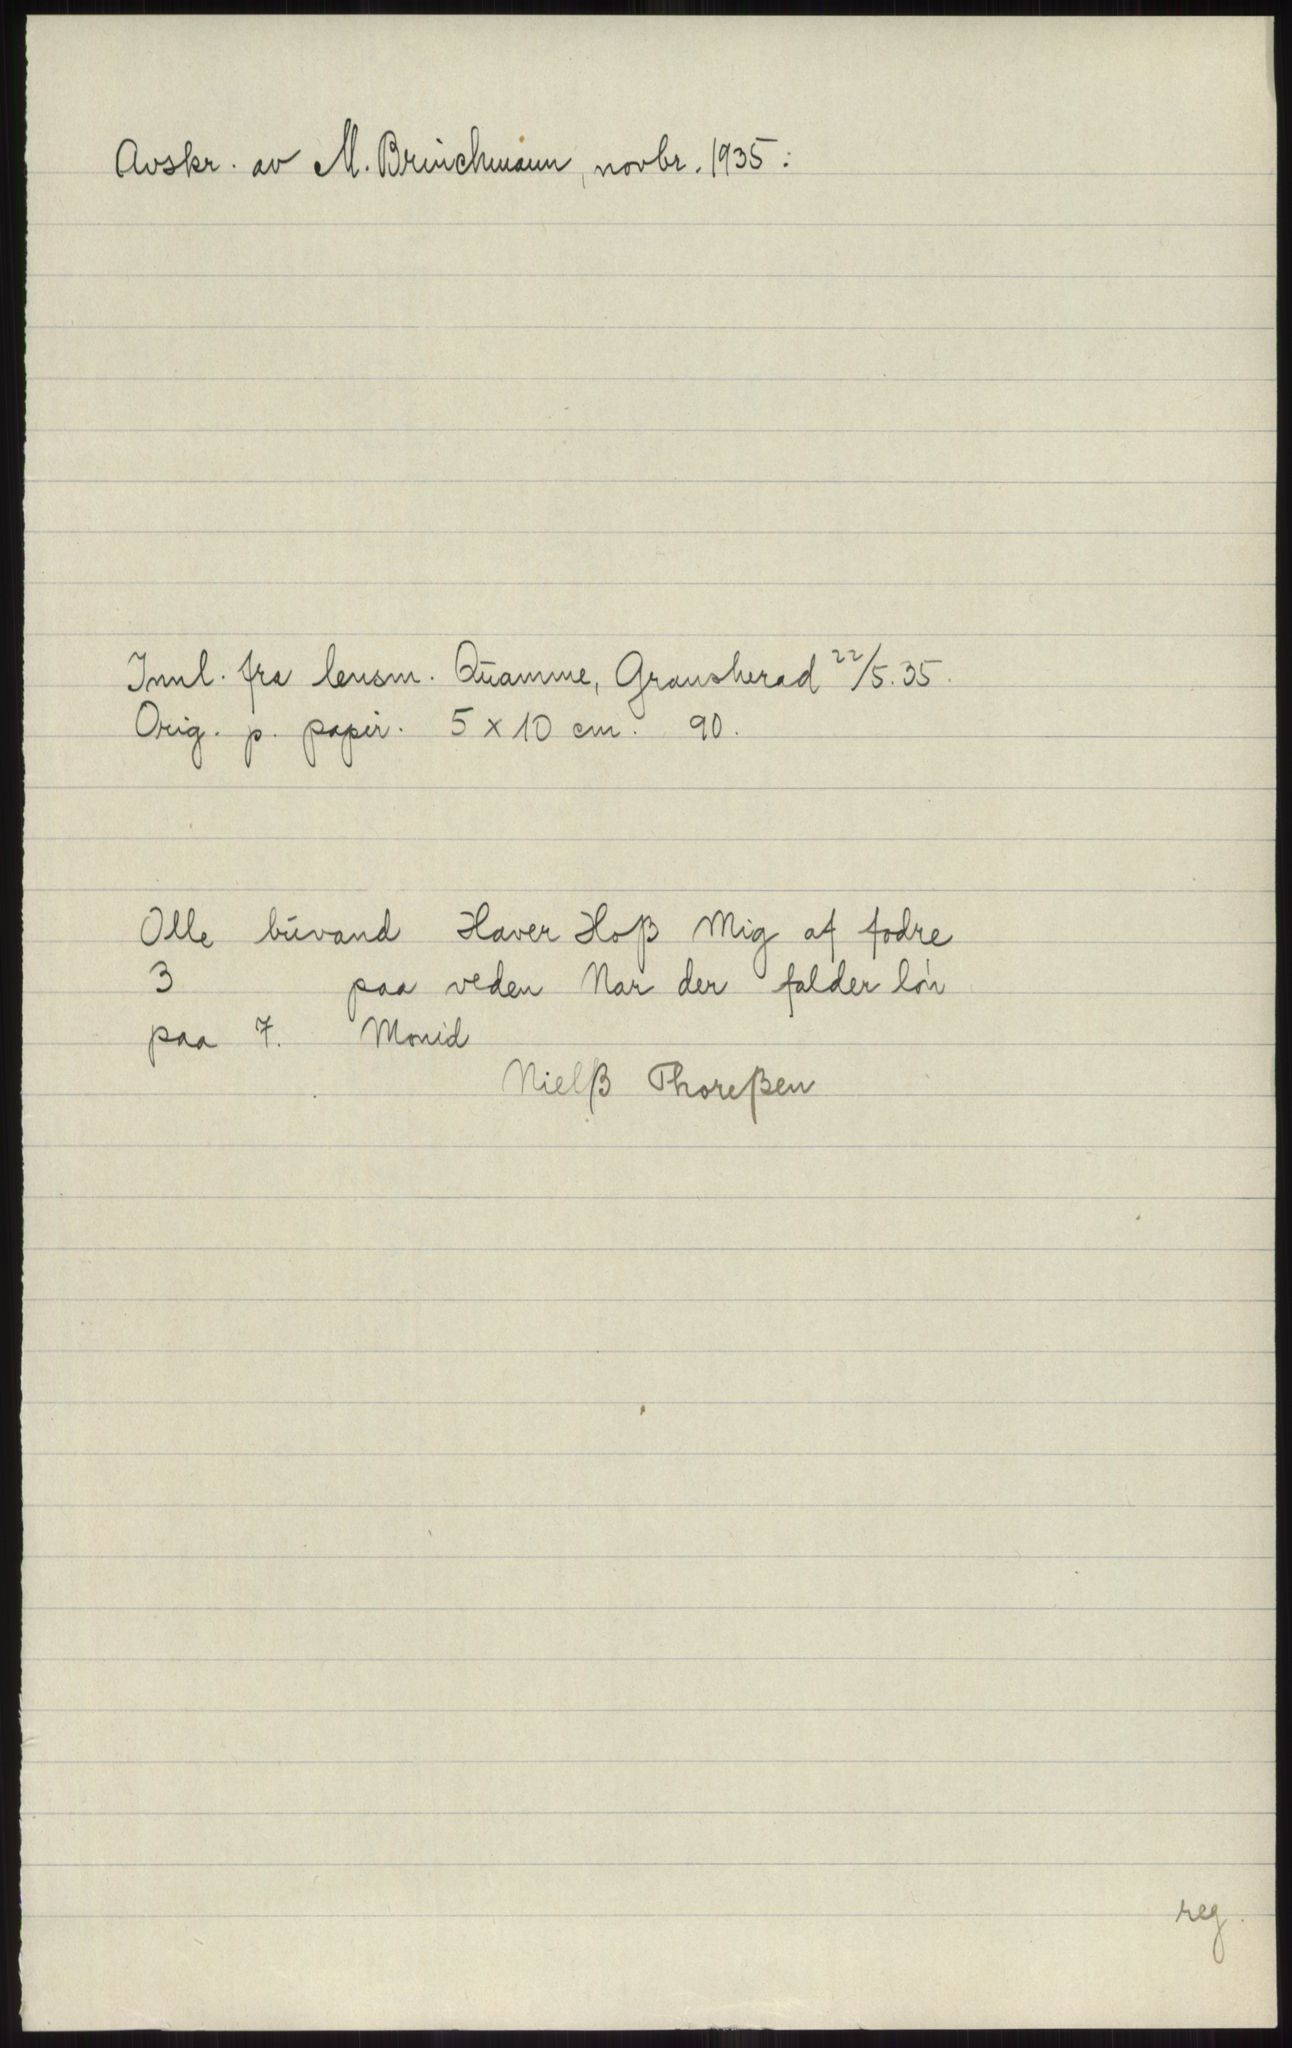 Avskr. av M. Brinchmann, novbr. 1935:
Innl. fra lensm. Quamme, Gransherad 22/5.35.
Orig. p. papir. 5 x 10 cm. 90.
Olle buvand Haver Hoß Mig af fodre
3 paa veden Nar der falder lön
paa 7. Monid
Nielß Thoreßen
reg.